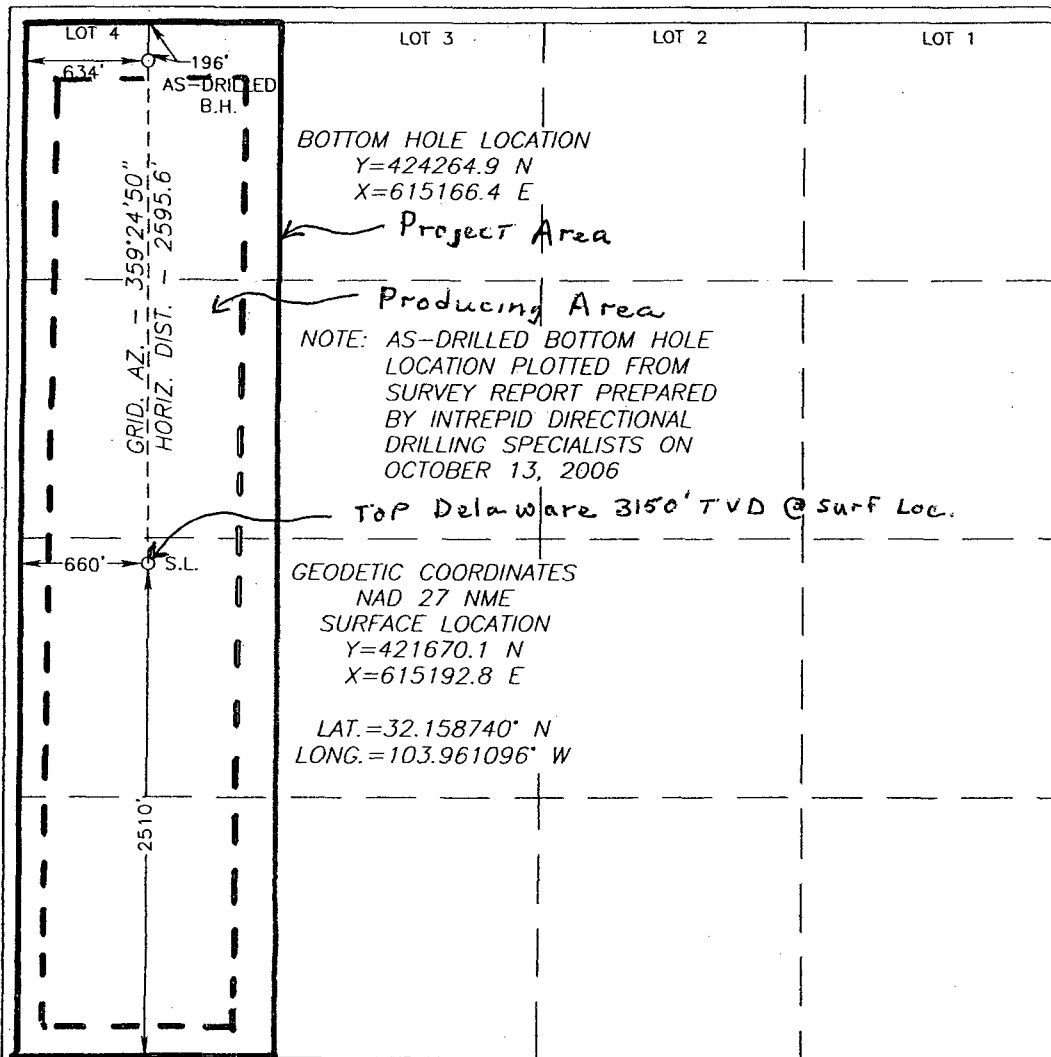 LOT 4
LOT 3
LOT 2
LOT 1
634'
196'
AS-DRILLED
B.H.
BOTTOM HOLE LOCATION
Y=424264.9 N
X=615166.4 E
Project Area
GRID. AZ. - 359°24'50"
HORIZ. DIST. - 2595.6'
Producing Area
NOTE: AS-DRILLED BOTTOM HOLE
LOCATION PLOTTED FROM
SURVEY REPORT PREPARED
BY INTREPID DIRECTIONAL
DRILLING SPECIALISTS ON
OCTOBER 13, 2006
TOP Delaware 3150' TVD @ Surf Loc.
660'
S.L.
GEODETIC COORDINATES
NAD 27 NME
SURFACE LOCATION
Y=421670.1 N
X=615192.8 E
LAT.=32.158740° N
LONG.=103.961096° W
2510'